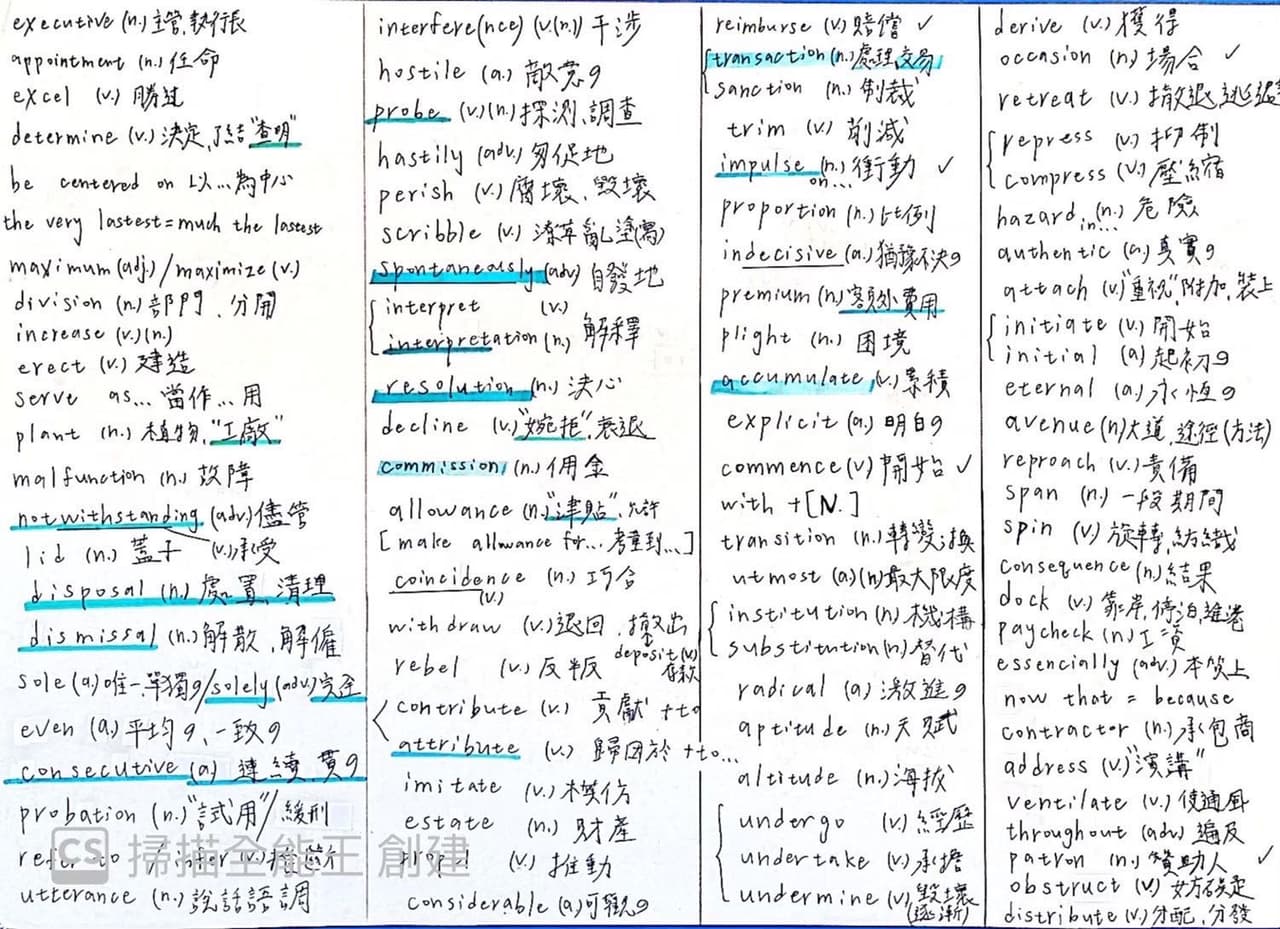 executive (n.) 主管,執行長
appointment (n.) 任命
excel (v.) 勝過
determine (v.) 決定,了結"查明"
be centered on 以…為中心
the very lastest=much the lastest
maximum (adj.)/maximize (v.)
division (n.) 部門、分開
increase (v.)(n.)
erect (v.) 建造
serve as... 當作…用
plant (n.) 植物,"工廠"
malfunction (n.) 故障
notwithstanding (adv.) 儘管
(v.)承受
lid (n.) 蓋子
disposal (n.) 處置、清理
dismissal (n.) 解散、解僱
sole (a.) 唯一單獨的/solely (adv.) 完全
even (a.) 平均的、一致的
consecutive (a.) 連續、貫的
probation (n.) "試用"/緩刑
refer to / infer (v.)
utterance (n.) 說話語調
interfere(nce) (v.(n.)) 干涉
hostile (a.) 敵意的
probe (v.)(n.) 探測、調查
hastily (adv.) 匆促地
perish (v.) 腐壞、毀壞
scribble (v.) 潦草亂塗(寫)
spontaneously (adv) 自發地
interpret (v.)
interpretation (n.) 解釋
resolution (n.) 決心
decline (v.) "婉拒",衰退
commission (n.) 佣金
allowance (n.) "津貼",允許
[make allowance for... 考量到…]
coincidence (n.) 巧合
(v.)
withdraw (v.) 退回、撤出
deposit (v.) 存款
rebel (v.) 反叛
contribute (v.) 貢獻 +to
attribute (v.) 歸因於 +to...
imitate (v.) 模仿
estate (n.) 財產
propel (v.) 推動
considerable (a.) 可觀的
reimburse (v.) 賠償 ✓
transaction (n.) 處理,交易
sanction (n.) 制裁
trim (v.) 削減
impulse (n.) 衝動 ✓
on...
proportion (n.) 比例
indecisive (a.) 猶豫不決的
premium (n.) 額外費用
plight (n.) 困境
accumulate (v.) 累積
explicit (a.) 明白的
commence (v.) 開始 ✓
with +[N.]
transition (n.) 轉變、換
utmost (a.)(n.) 最大限度
institution (n.) 機構
substitution (n.) 替代
radical (a) 激進的
aptitude (n.) 天賦
altitude (n.) 海拔
undergo (v.) 經歷
undertake (v.) 承擔
undermine (v.) 毀壞
(逐漸)
derive (v.) 獲得
occasion (n.) 場合 ✓
retreat (v.) 撤退,逃避
repress (v.) 抑制
compress (v.) 壓縮
hazard (n.) 危險
in...
authentic (a.) 真實的
attach (v.) "重視",附加,裝上
initiate (v.) 開始
initial (a) 起初的
eternal (a.) 永恆的
avenue (n) 大道,途徑(方法)
reproach (v.) 責備
span (n.) 一段期間
spin (v) 旋轉,紡織
consequence (n.) 結果
dock (v.) 靠岸,停泊,進港
paycheck (n.) 工資
essencially (adv.) 本質上
now that = because
contractor (n.) 承包商
address (v.) "演講"
ventilate (v.) 使通風
throughout (adv.) 遍及
patron (n.) 贊助人 ✓
obstruct (v.) 妨礙
distribute (v.) 分配,分發
CS 掃描全能王 創建